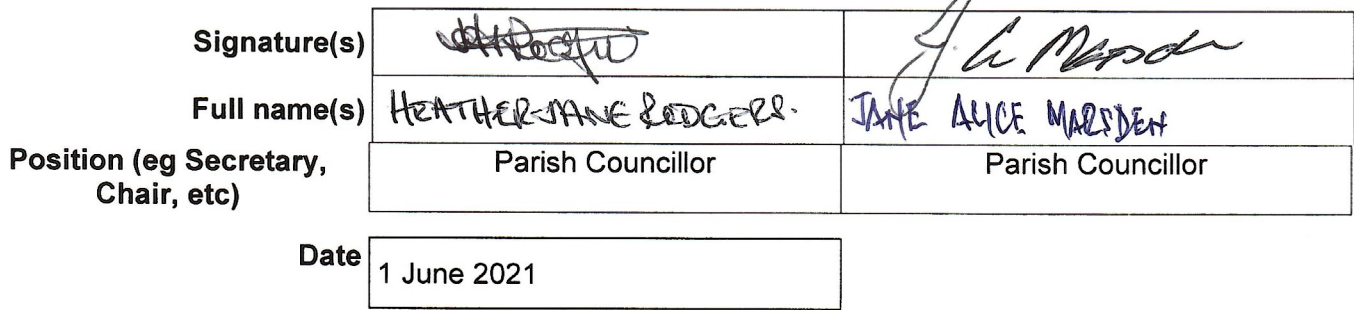 Signature(s) J. A Marsden
Full name(s) HEATHER-JANE RODGERS. JANE ALICE MARSDEN
Position (eg Secretary, Parish Councillor Parish Councillor
Chair, etc)
Date 1 June 2021